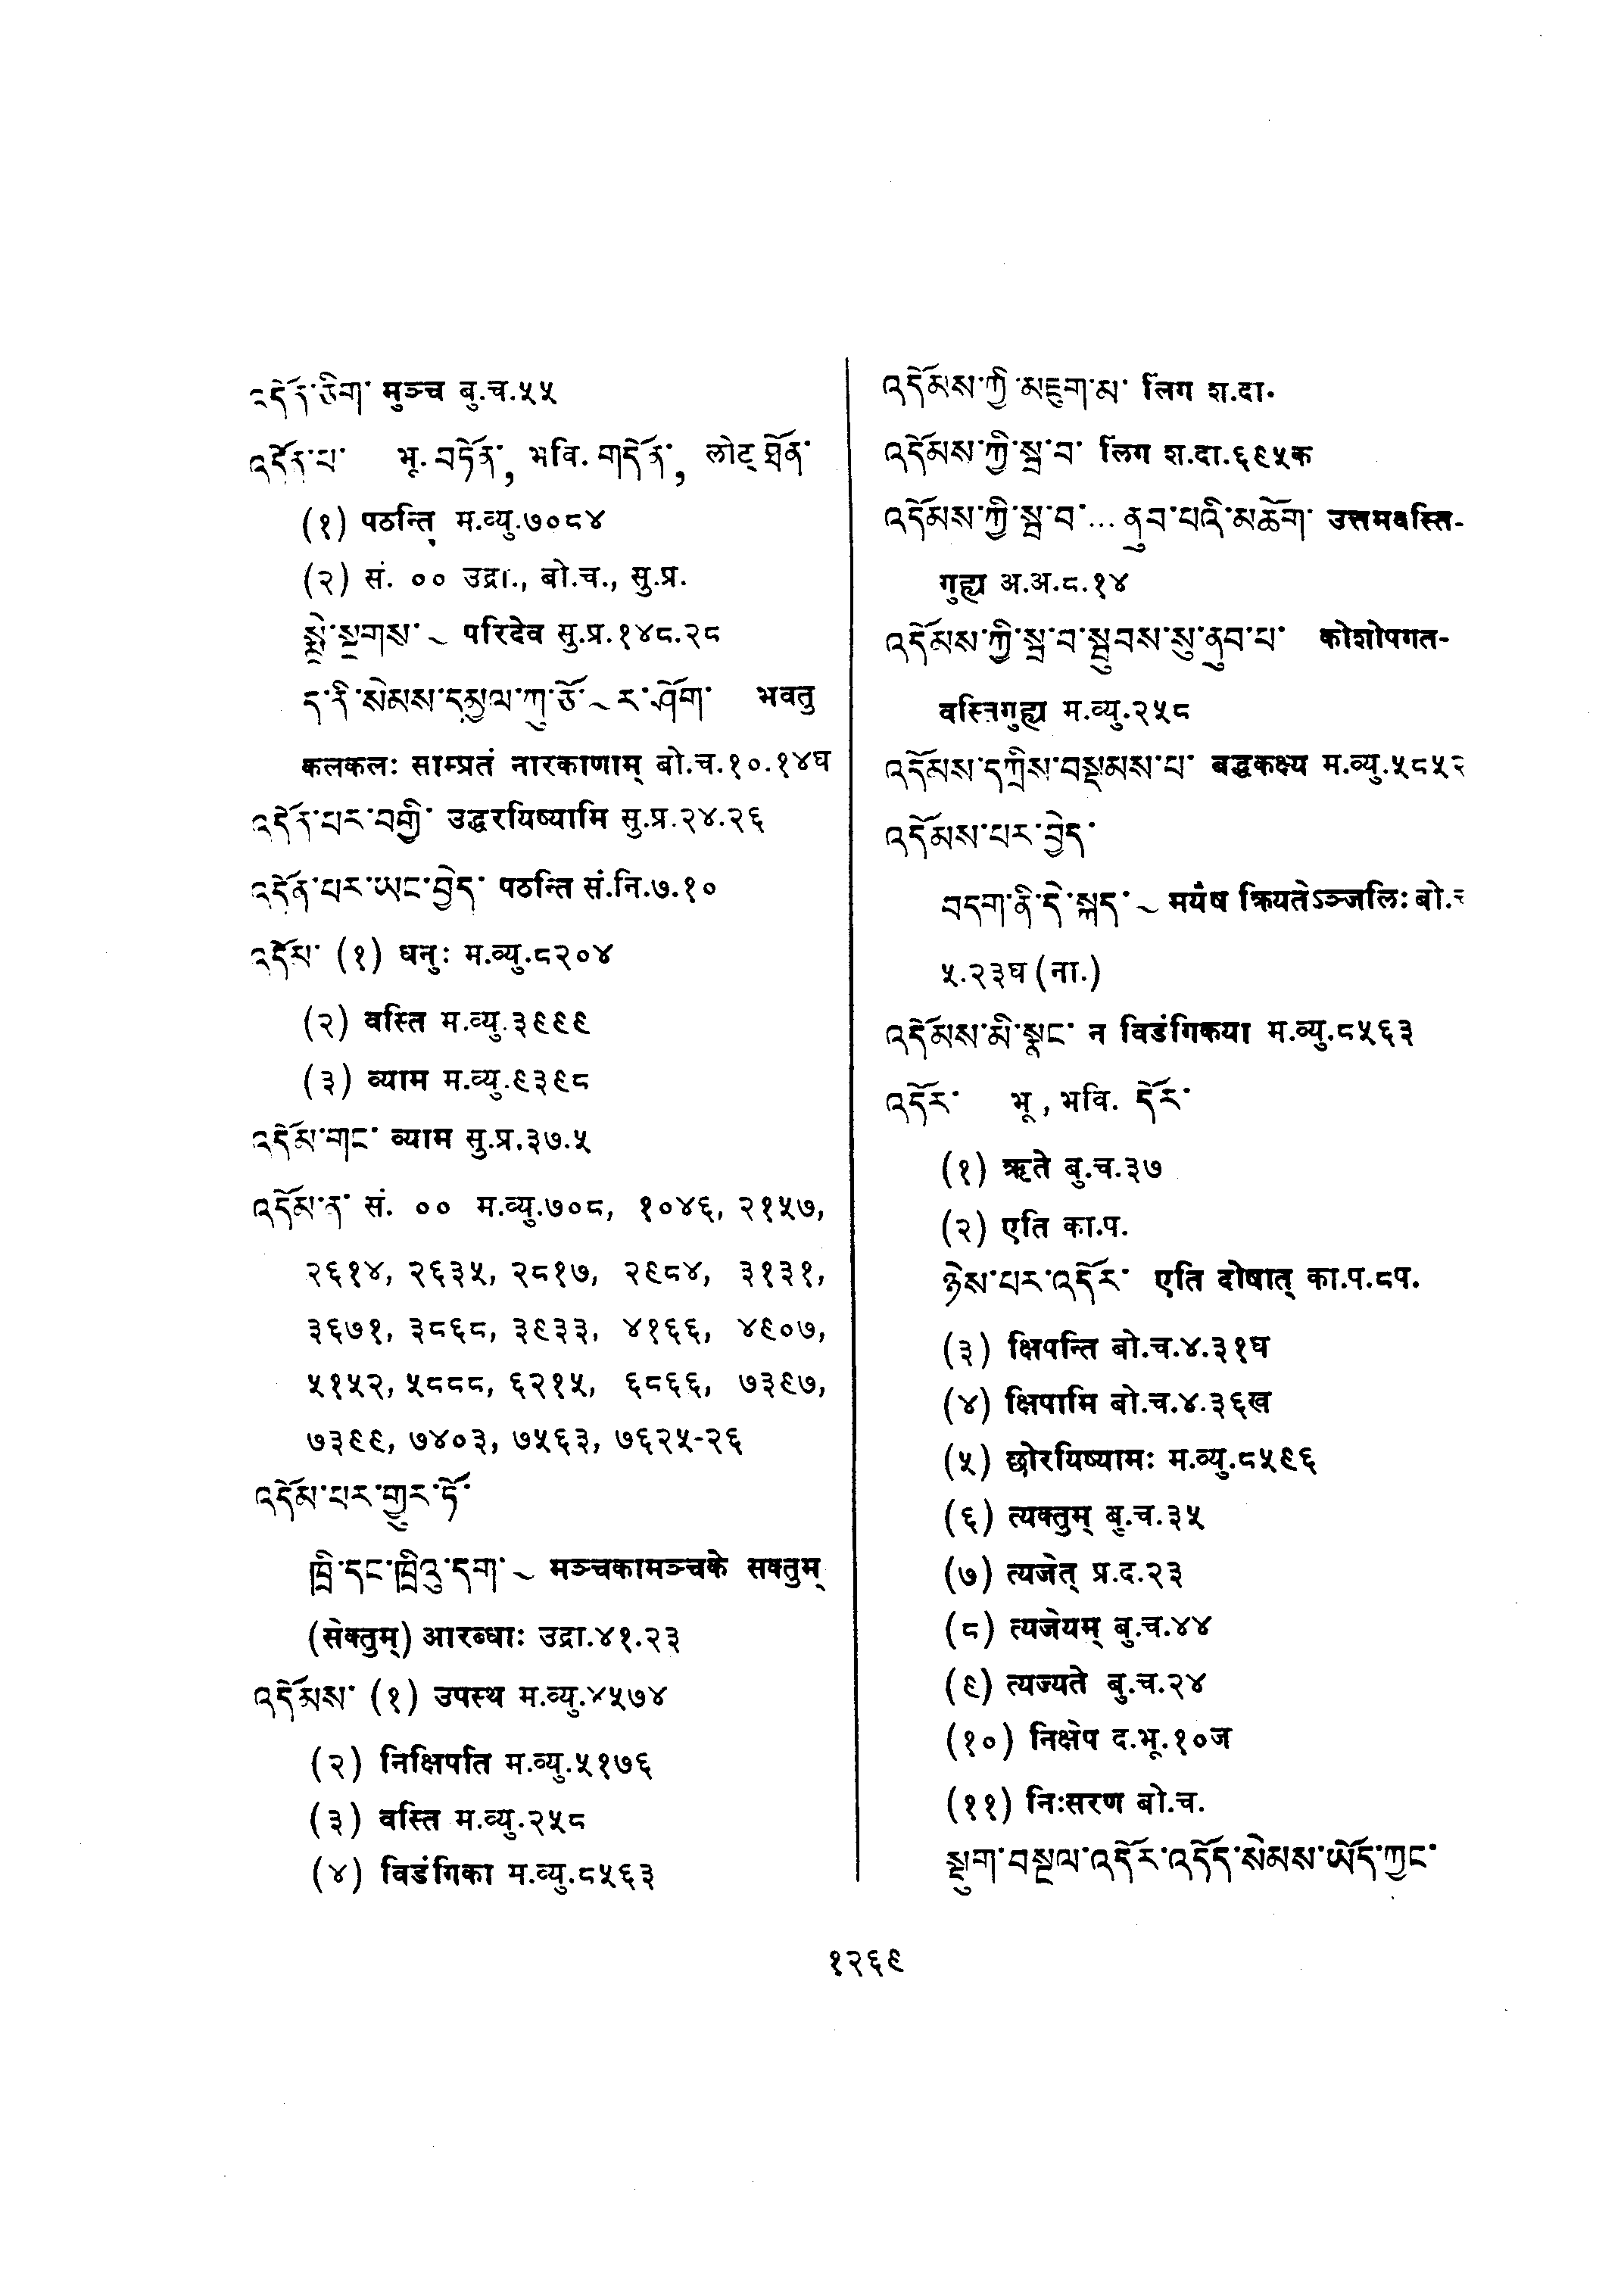 འདོན་ཅིག་ मुञ्च बु.च.५५
འདོན་པ་ भू. བཏོན་, भवि. གདོན་, लोट् ཐོན་
(१) पठन्ति म.व्यु.७०८४
(२) सं. ०० उद्रा., बो.च., सु.प्र.
སྨྲེ་སྔགས་ ~ परिदेव सु.प्र.१४८.२८
ད་ནི་སེམས་དམྱལ་ཀུ་ཅོ་ ~ ར་ཤོག་ भवतु
कलकलः साम्प्रतं नारकाणाम् बो.च.१०.१४घ
འདོན་པར་བགྱི་ उद्धरयिष्यामि सु.प्र.२४.२६
འདོན་པར་ཡང་བྱེད་ पठन्ति सं.नि.७.१०
འདོམ་ (१) धनुः म.व्यु.८२०४
(२) वस्ति म.व्यु.३९९९
(३) व्याम म.व्यु.९३९८
འདོམ་གང་ व्याम सु.प्र.३७.५
འདོམ་ན་ सं. ०० म.व्यु.७०८, १०४६, २१५७,
२६१४, २६३५, २८१७, २९८४, ३१३१,
३६७१, ३८६८, ३९३३, ४१६६, ४९०७,
५१५२, ५८८८, ६२१५, ६८६६, ७३९७,
७३९९, ७४०३, ७५६३, ७६२५-२६
འདོམ་པར་གྱུར་ཏོ་
ཁྲི་དང་ཁྲིའུ་དག་ ~ मञ्चकामञ्चके सक्तुम्
(सेक्तुम्) आरब्धाः उद्रा.४१.२३
འདོམས་ (१) उपस्थ म.व्यु.४५७४
(२) निक्षिपति म.व्यु.५१७६
(३) वस्ति म.व्यु.२५८
(४) विडंगिका म.व्यु.८५६३
འདོམས་ཀྱི་མཇུག་མ་ लिग श.दा.
འདོམས་ཀྱི་སྦ་བ་ लिग श.दा.६९५क
འདོམས་ཀྱི་སྦ་བ་... ནུབ་པའི་མཆོག་ उत्तमवस्ति-
गुह्य अ.अ.८.१४
འདོམས་ཀྱི་སྦ་བ་སྦུབས་སུ་ནུབ་པ་ कोशोपगत-
वस्तिगुह्य म.व्यु.२५८
འདོམས་དཀྲིས་བསྡམས་པ་ बद्धकक्ष्य म.व्यु.५८५२
འདོམས་པར་བྱེད་
བདག་ནི་དེ་སྐད་ ~ मयैष क्रियतेऽञ्जलिः बो.
५.२३घ (ना.)
འདོམས་མི་སྣང་ न विडंगिकया म.व्यु.८५६३
འདོར་ भू, भवि. དོར་
(१) ऋते बु.च.३७
(२) एति का.प.
ཉེས་པར་འདོར་ एति दोषात् का.प.८प.
(३) क्षिपन्ति बो.च.४.३१घ
(४) क्षिपामि बो.च.४.३६ख
(५) छोरयिष्यामः म.व्यु.८५९६
(६) त्यक्तुम् बु.च.३५
(७) त्यजेत् प्र.द.२३
(८) त्यजेयम् बु.च.४४
(९) त्यज्यते बु.च.२४
(१०) निक्षेप द.भू.१०ज
(११) निःसरण बो.च.
སྡུག་བསྔལ་འདོར་འདོད་སེམས་ཡོད་ཀྱང་
१२६९